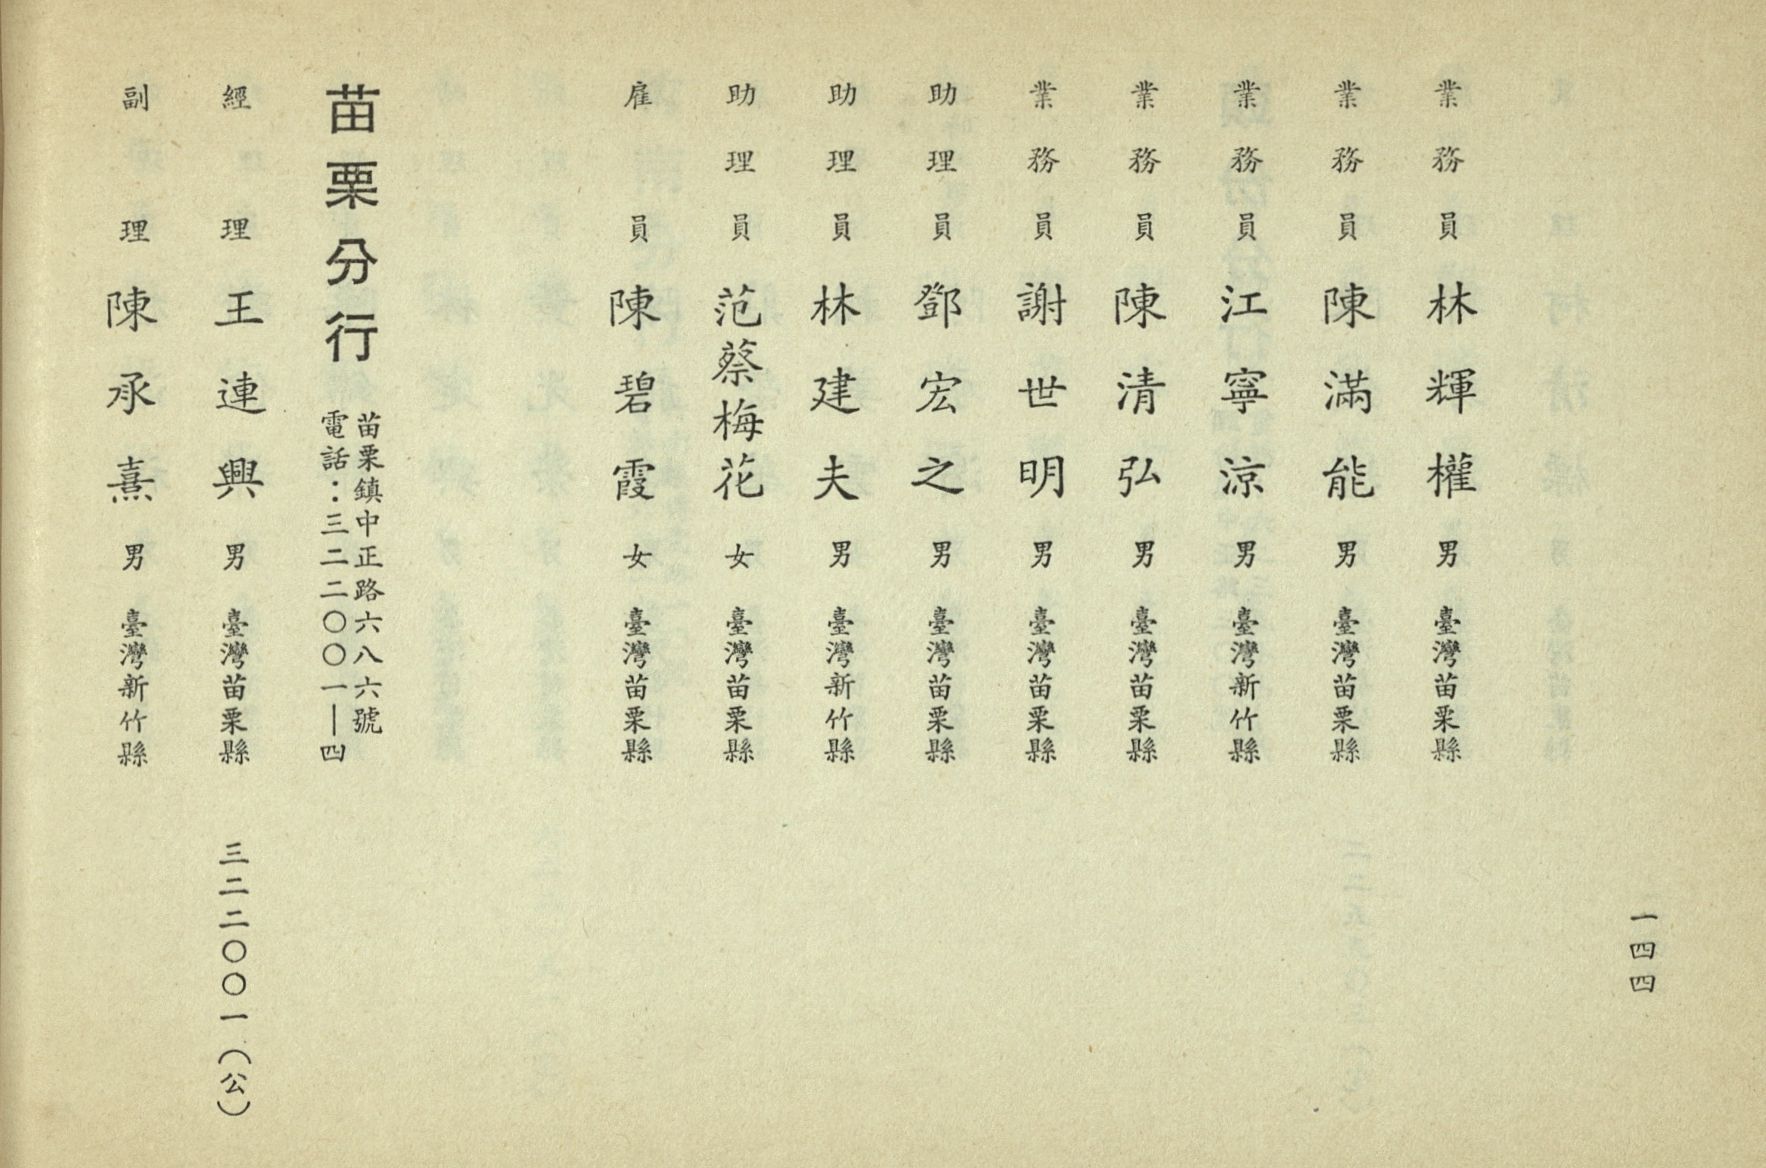 一四四
業務員 林輝權 男 臺灣苗栗縣
業務員 陳滿能 男 臺灣苗栗縣
業務員 江寧涼 男 臺灣新竹縣
業務員 陳清弘 男 臺灣苗栗縣
業務員 謝世明 男 臺灣苗栗縣
助理員 鄧宏之 男 臺灣苗栗縣
助理員 林建夫 男 臺灣新竹縣
助理員 范蔡梅花 女 臺灣苗栗縣
雇員 陳碧霞 女 臺灣苗栗縣
苗栗分行
苗栗鎮中正路六八六號
電話：三二二〇〇一—四
經理 王連興 男 臺灣苗栗縣 三二二〇〇一（公）
副理 陳承熹 男 臺灣新竹縣